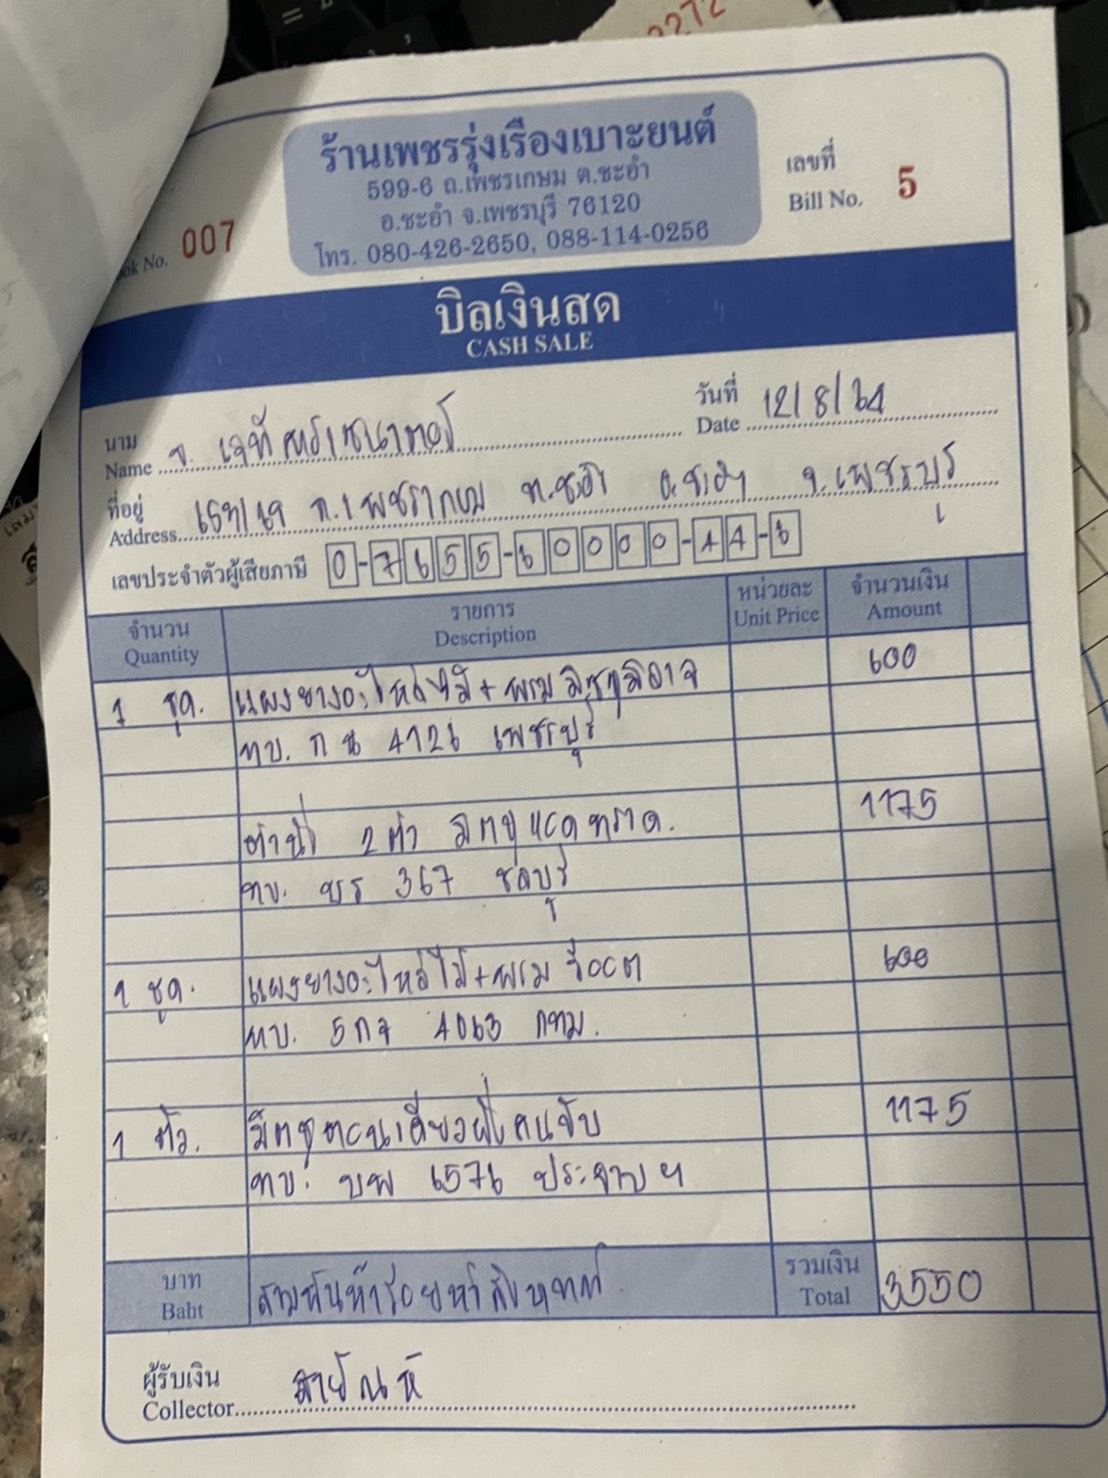 2272
ร้านเพชรรุ่งเรืองเบาะยนต์
599-6 ถ.เพชรเกษม ต.ชะอำ
อ.ชะอำ จ.เพชรบุรี 76120
โทร. 080-426-2650, 088-114-0256
เลขที่
Bill No. 5
ok No. 007
บิลเงินสด
CASH SALE
นาม
Name
วันที่
Date 12/8/64
ที่อยู่
Address ต.ชะอำ อ.ชะอำ จ.เพชรบุรี
เลขประจำตัวผู้เสียภาษี 0-7655-60000-44-6
จำนวน รายการ หน่วยละ จำนวนเงิน
Quantity Description Unit Price Amount
1 ชุด. แผงยางอะไหล่ไม้+พรม มิตซูมิราจ 600
ทบ. กษ 4126 เพชรบุรี
2 ตัว 1175
ทบ. 367 ชลบุรี
1 ชุด. แผงยางอะไหล่ไม้+พรม 600
ทบ. 5กว 4063 กทม.
1 ตัว. มิตซูตอนเดียวฝั่งคนขับ 1175
ทบ. บพ 6576 ประจวบฯ
บาท
Baht สามพันห้าร้อยห้าสิบบาท
รวมเงิน
Total 3550
ผู้รับเงิน
Collector